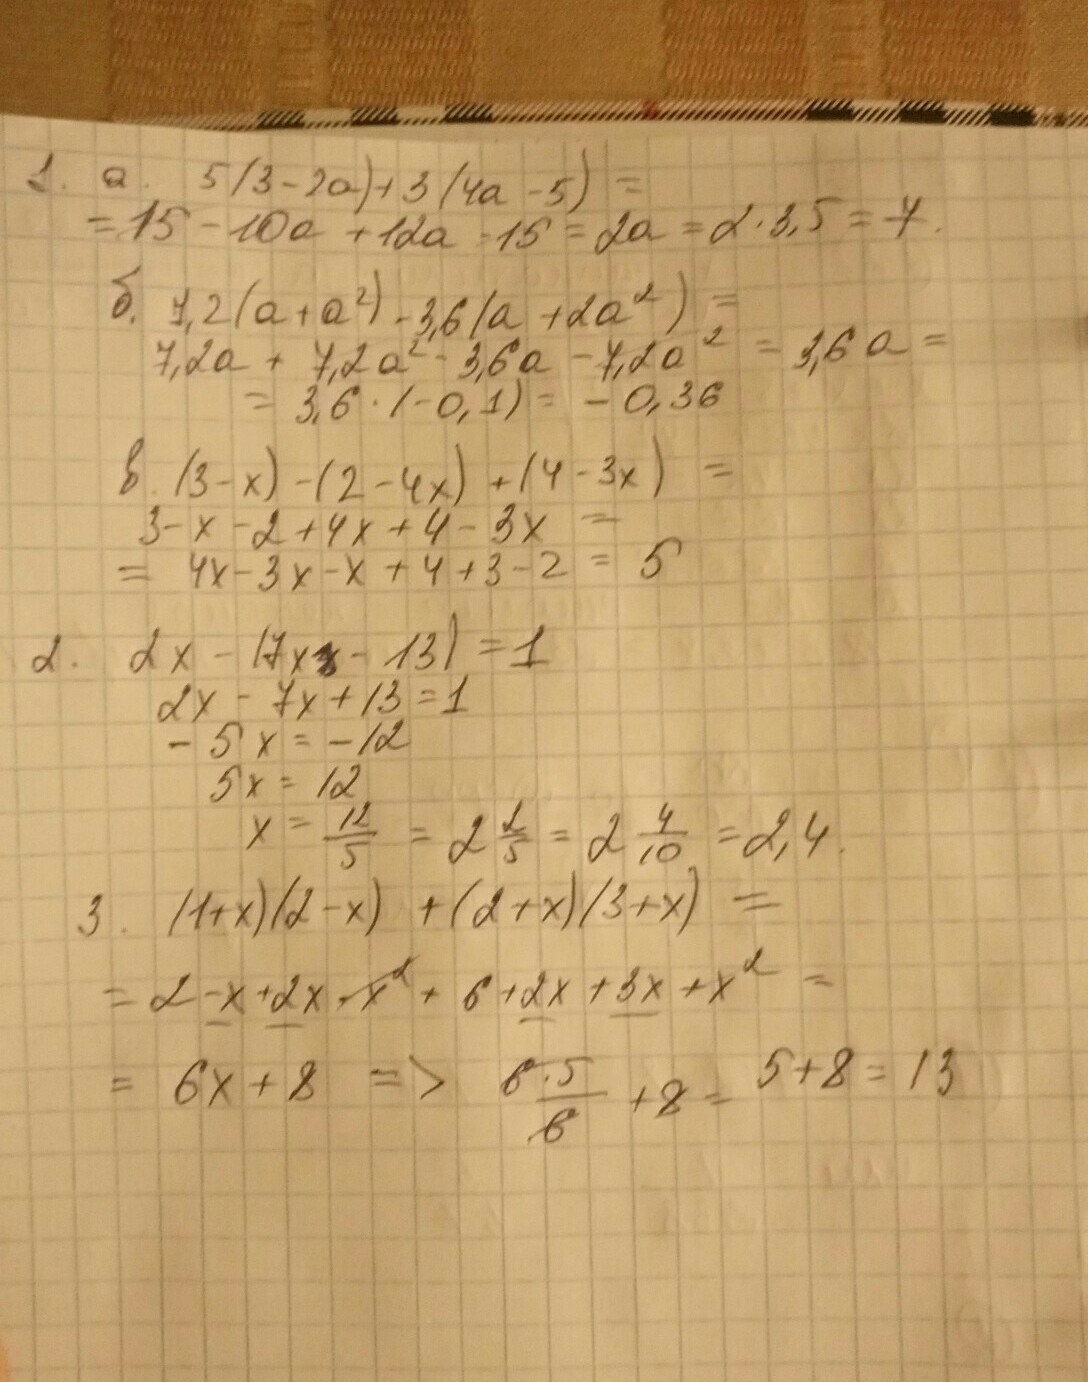 1. а. 5(3-2a)+3(4a-5) =
= 15 - 10a + 12a - 15 = 2a = 2·3,5 = 7.
б. 7,2(a+a²) - 3,6(a+2a²) =
7,2a + 7,2a² - 3,6a - 7,2a² = 3,6a =
= 3,6·(-0,1) = -0,36
в. (3-x) - (2-4x) + (4-3x) =
3-x-2+4x+4-3x =
= 4x-3x-x+4+3-2 = 5
2. 2x - (7x - 13) = 1
2x - 7x + 13 = 1
-5x = -12
5x = 12
x = 12/5 = 2 2/5 = 2 4/10 = 2,4.
3. (1+x)(2-x) + (2+x)(3+x) =
= 2-x+2x-x² + 6+2x+3x+x² =
= 6x+8 => 6·5/6 +8 = 5+8 = 13